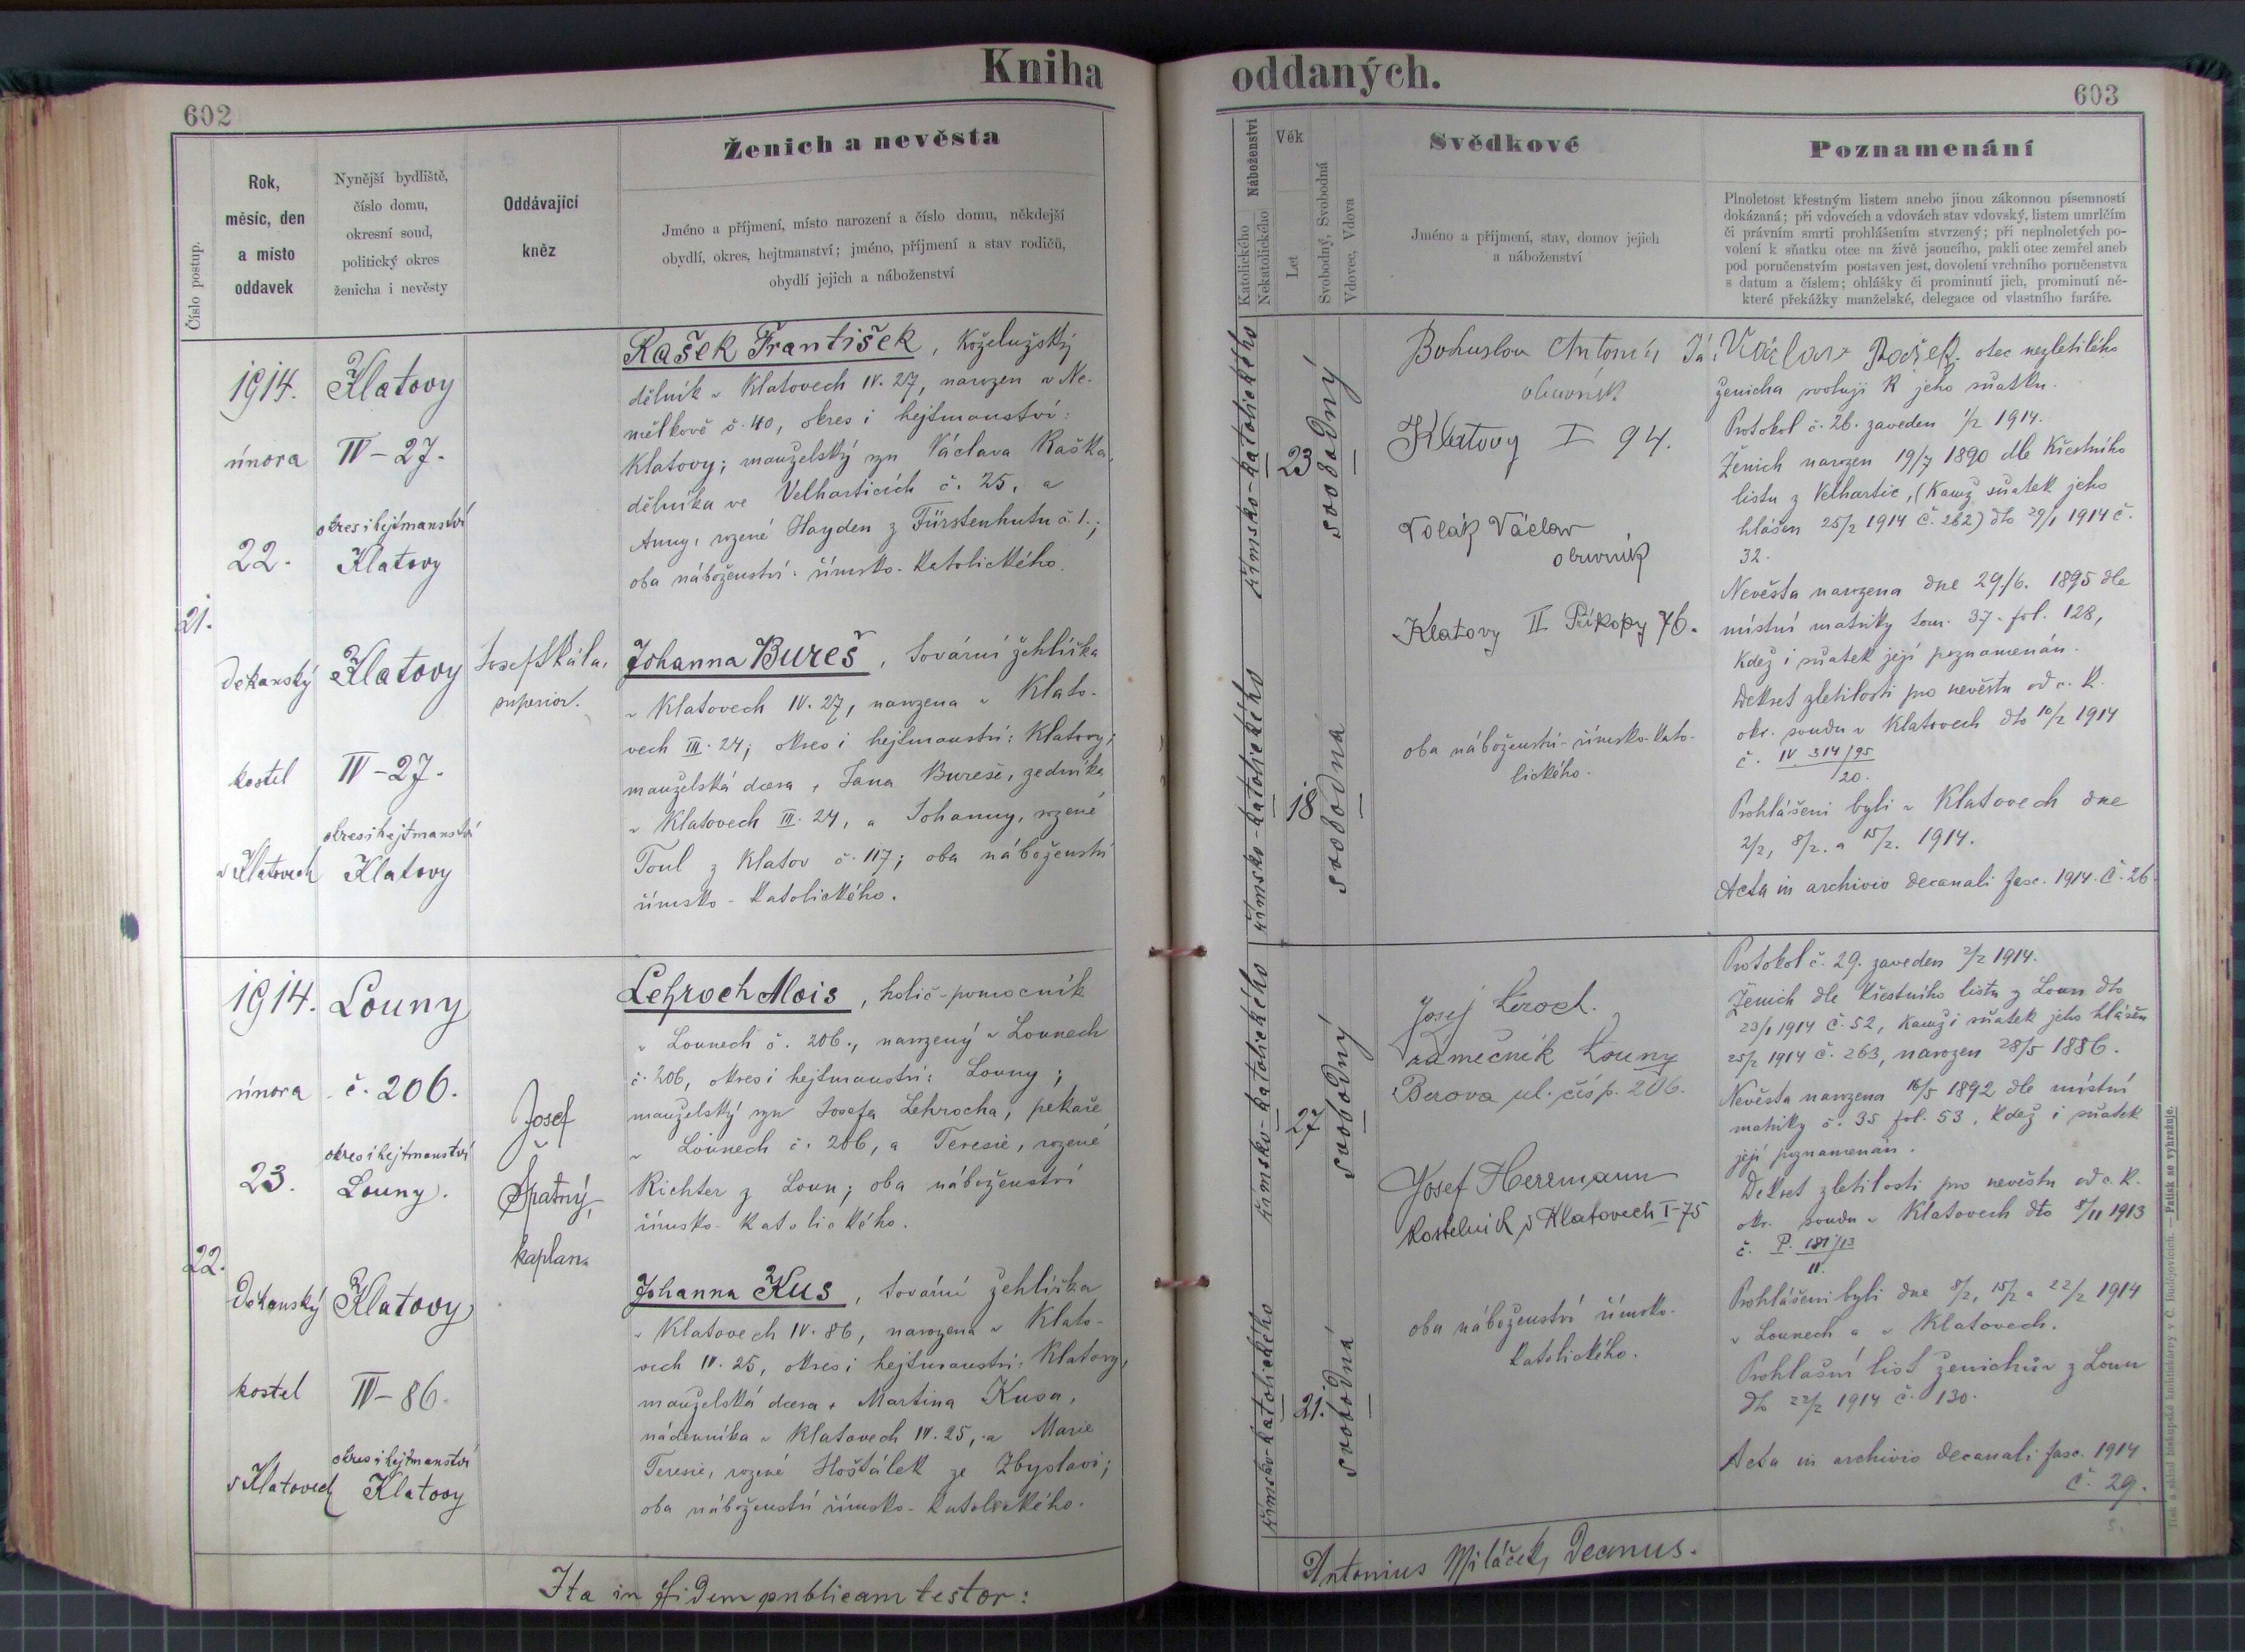 Kniha
602
Číslo postup.
Rok,
měsíc, den
a místo
oddavek
Nynější bydliště,
číslo domu,
okresní soud,
politický okres
ženicha i nevěsty
Oddávající
kněz
Ženich a nevěsta
Jméno a příjmení, místo narození a číslo domu, někdejší
obydlí, okres, hejtmanství; jméno, příjmení a stav rodičů,
obydlí jejich a náboženství
21.
1914.
února
22.
Děkanský
kostel
v Klatovech
Klatovy
IV-27.
okres i hejtmanství
Klatovy
Klatovy
IV-27.
okres i hejtmanství
Klatovy
Josef Skála,
superior.
Rašek František, koželužský
dělník v Klatovech IV. 27, narozen v Ne-
mělkově č. 40, okres i hejtmanství:
Klatovy; manželský syn Václava Raška,
dělníka ve Velharticích č. 25, a
Anny, rozené Hayden z Fürstenhutu č. 1.;
oba náboženství římsko-katolického.
Johanna Bureš, tovární žehlířka
v Klatovech IV. 27, narozena v Klato-
vech III. 24; okres i hejtmanství: Klatovy;
manželská dcera, Jana Bureše, zedníka
v Klatovech III. 24, a Johanny, rozené
Toul z Klatov č. 117; oba náboženství
římsko-katolického.
22.
1914.
února
23.
Děkanský
kostel
v Klatovech
Louny
č. 206.
okres i hejtmanství
Louny.
Klatovy
IV-86.
okres i hejtmanství
Klatovy
Josef
Špatný,
kaplan.
Lehroch Alois, holič-pomocník
v Lounech č. 206., narozený v Lounech
č. 206, okres i hejtmanství: Louny;
manželský syn Josefa Lehrocha, pekaře
v Lounech č. 206, a Teresie, rozené
Richter z Loun; oba náboženství
římsko-katolického.
Johanna Kus, tovární žehlířka
v Klatovech IV. 86, narozena v Klato-
vech IV. 25, okres i hejtmanství: Klatovy,
manželská dcera, Martina Kusa,
nádenníka v Klatovech IV. 25, a Marie
Teresie, rozené Hoštálek ze Zbyslavi;
oba náboženství římsko-katolického.
Ita in fidem publicam testor:
oddaných.
603
Náboženství
Katolického
Nekatolického
Věk
Let
Svobodný, Svobodná
Vdovec, Vdova
Svědkové
Jméno a příjmení, stav, domov jejich
a náboženství
Poznamenání
Plnoletost křestným listem anebo jinou zákonnou písemností
dokázaná; při vdovcích a vdovách stav vdovský, listem umrlčím
či právním smrti prohlášením stvrzený; při neplnoletých po-
volení k sňatku otce na živě jsoucího, pakli otec zemřel aneb
pod poručenstvím postaven jest, dovolení vrchního poručenstva
s datum a číslem; ohlášky či prominutí jich, prominutí ně-
které překážky manželské, delegace od vlastního faráře.
římsko-katolického
23
svobodný
římsko-katolického
18
svobodná
Bohuslav Antonín
obuvník
Klatovy I 94.
Polák Václav
obuvník
Klatovy II Příkopy 76.
oba náboženství-římsko-kato-
lického.
Já Václav Rašek otec nezletilého
ženicha svoluji k jeho sňatku.
Protokol č. 26. zaveden 1/2 1914.
Ženich narozen 19/7 1890 dle křestního
listu z Velhartic, (kamž sňatek jeho
hlášen 25/2 1914 č. 262) dto 29/1 1914 č.
32.
Nevěsta narozena dne 29/6. 1895 dle
místní matriky tom. 37. fol. 128,
kdež i sňatek její poznamenán.
Dekret zletilosti pro nevěstu od c. k.
okr. soudu v Klatovech dto 10/2 1914
č. IV. 314/95
20.
Prohlášeni byli v Klatovech dne
2/2, 8/2. a 15/2. 1914.
Acta in archivio decanali fasc. 1914. č. 26.
římsko-katolického
27
svobodný
římsko-katolického
21.
svobodná
Josef Leroch.
zámečník Louny
Berova ul. čísp. 206.
Josef Herrmann
kostelník v Klatovech I-75
oba náboženství římsko-
katolického.
Protokol č. 29. zaveden 2/2 1914.
Ženich dle křestního listu z Loun dto
23/1 1914 č. 52, kamž i sňatek jeho hlášen
25/2 1914 č. 263, narozen 28/5 1886.
Nevěsta narozena 16/5 1892 dle místní
matriky č. 35 fol. 53, kdež i sňatek
její poznamenán.
Dekret zletilosti pro nevěstu od c. k.
okr. soudu v Klatovech dto 8/11 1913
č. P. 181/13
11.
Prohlášeni byli dne 8/2, 15/2 a 22/2 1914
v Lounech a v Klatovech.
Prohlašní list ženichův z Loun
dto 22/2 1914 č. 130.
Acta in archivio decanali fasc. 1914
č. 29.
Antonius Miláček, Decanus.
Tisk a sklad biskupské knihtiskárny v Č. Budějovicích. — Patisk se vyhražuje.